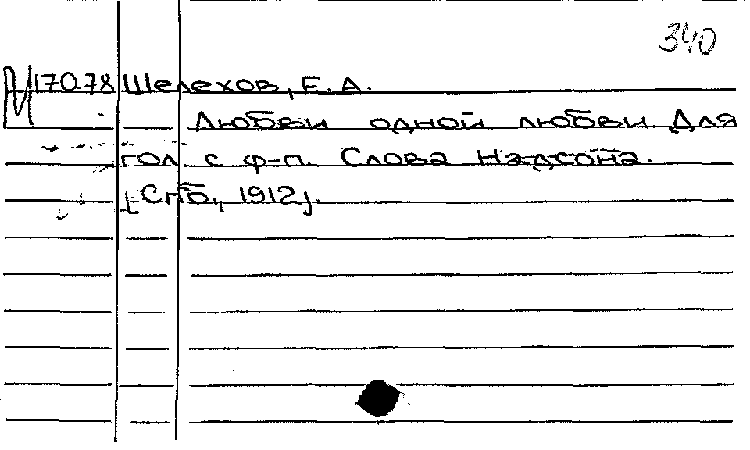 340
М 17078 Шелехов, Е. А.
Любви одной любви. Для
гол. с ф-п. Слова Надсона.
[Спб., 1912].